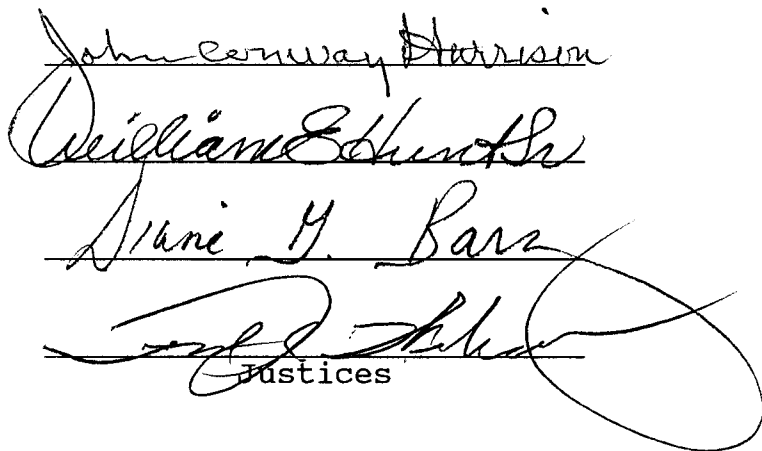 John Conway Harrison
William E Hunt Sr
Diane G. Barz
Justices